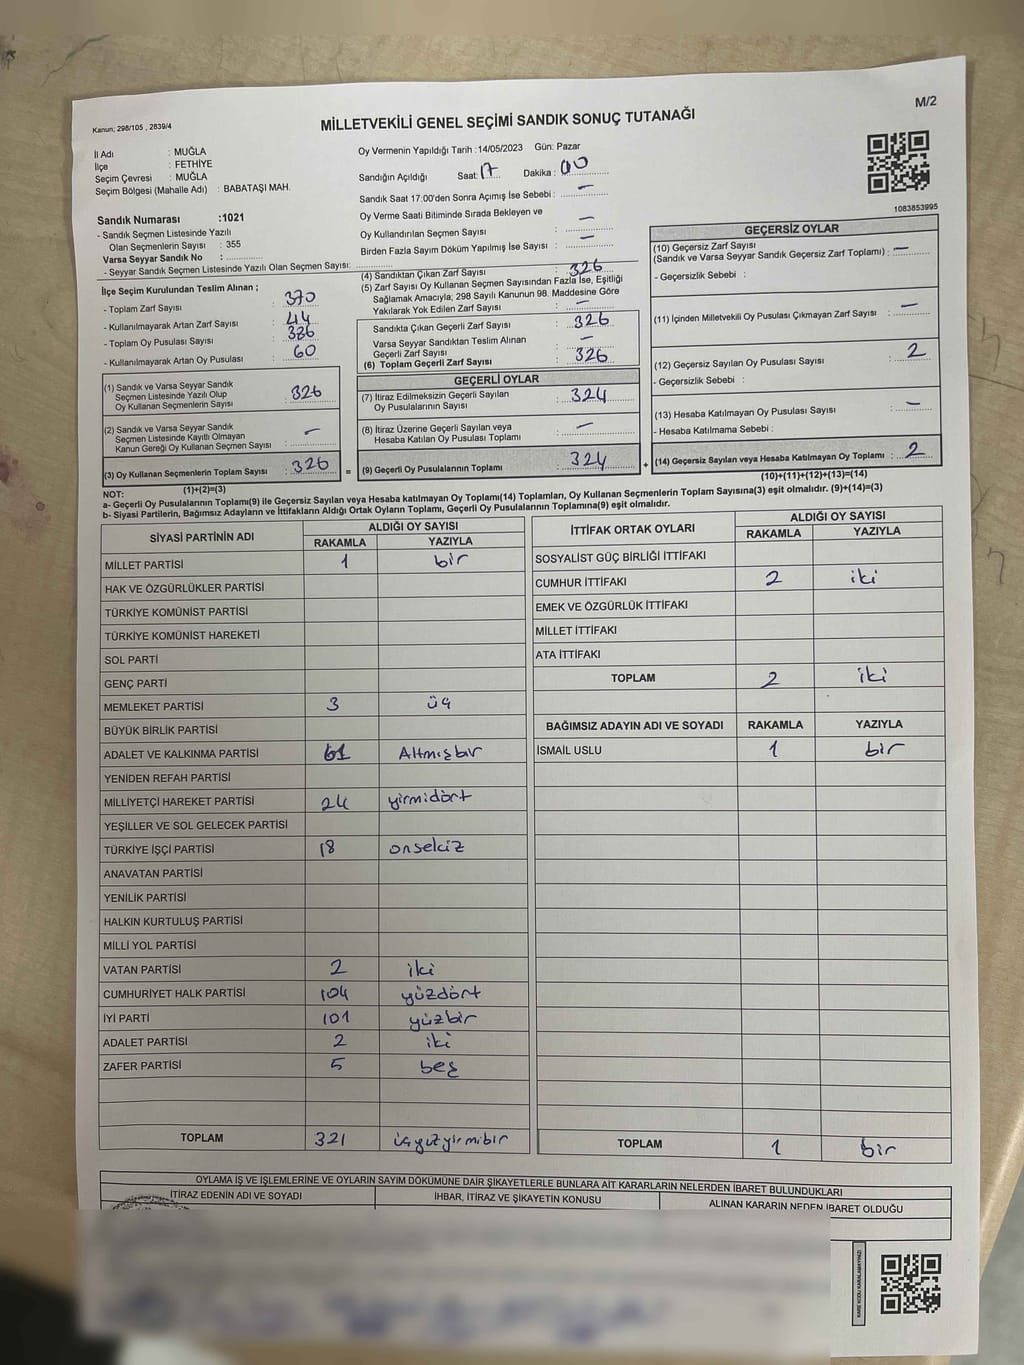 M/2
Kanun; 298/105 , 2839/4
MİLLETVEKİLİ GENEL SEÇİMİ SANDIK SONUÇ TUTANAĞI
İl Adı : MUĞLA
İlçe : FETHİYE
Seçim Çevresi : MUĞLA
Seçim Bölgesi (Mahalle Adı) : BABATAŞI MAH.
Sandık Numarası :1021
- Sandık Seçmen Listesinde Yazılı
Olan Seçmenlerin Sayısı : 355
Varsa Seyyar Sandık No :
- Seyyar Sandık Seçmen Listesinde Yazılı Olan Seçmen Sayısı:
Oy Vermenin Yapıldığı Tarih :14/05/2023 Gün: Pazar
Sandığın Açıldığı Saat: 17 Dakika : 00
Sandık Saat 17:00'den Sonra Açımış İse Sebebi : —
Oy Verme Saati Bitiminde Sırada Bekleyen ve
Oy Kullandırılan Seçmen Sayısı : —
Birden Fazla Sayım Döküm Yapılmış İse Sayısı : —
1083853995
İlçe Seçim Kurulundan Teslim Alınan ;
- Toplam Zarf Sayısı : 370
- Kullanılmayarak Artan Zarf Sayısı : 44
- Toplam Oy Pusulası : 386
- Kullanılmayarak Artan Oy Pusulası : 60
(1) Sandık ve Varsa Seyyar Sandık
Seçmen Listesinde Yazılı Olup
Oy Kullanan Seçmenlerin Sayısı : 326
(2) Sandık ve Varsa Seyyar Sandık
Seçmen Listesinde Kayıtlı Olmayan
Kanun Gereği Oy Kullanan Seçmen Sayısı : —
(3) Oy Kullanan Seçmenlerin Toplam Sayısı : 326 =
(1)+(2)=(3)
(4) Sandıktan Çıkan Zarf Sayısı : 326
(5) Zarf Sayısı Oy Kullanan Seçmen Sayısından Fazla İse, Eşitliği
Sağlamak Amacıyla, 298 Sayılı Kanunun 98. Maddesine Göre
Yakılarak Yok Edilen Zarf Sayısı : —
Sandıkta Çıkan Geçerli Zarf Sayısı : 326
Varsa Seyyar Sandıktan Teslim Alınan
Geçerli Zarf Sayısı : —
(6) Toplam Geçerli Zarf Sayısı : 326
GEÇERLİ OYLAR
(7) İtiraz Edilmeksizin Geçerli Sayılan
Oy Pusulalarının Sayısı : 324
(8) İtiraz Üzerine Geçerli Sayılan veya
Hesaba Katılan Oy Pusulası Toplamı : —
(9) Geçerli Oy Pusulalarının Toplamı : 324 +
GEÇERSİZ OYLAR
(10) Geçersiz Zarf Sayısı
(Sandık ve Varsa Seyyar Sandık Geçersiz Zarf Toplamı) : —
- Geçersizlik Sebebi :
(11) İçinden Milletvekili Oy Pusulası Çıkmayan Zarf Sayısı : —
(12) Geçersiz Sayılan Oy Pusulası Sayısı : 2
- Geçersizlik Sebebi :
(13) Hesaba Katılmayan Oy Pusulası Sayısı : —
- Hesaba Katılmama Sebebi :
(14) Geçersiz Sayılan veya Hesaba Katılmayan Oy Toplamı : 2
(10)+(11)+(12)+(13)=(14)
NOT:
a- Geçerli Oy Pusulalarının Toplamı(9) ile Geçersiz Sayılan veya Hesaba katılmayan Oy Toplamı(14) Toplamları, Oy Kullanan Seçmenlerin Toplam Sayısına(3) eşit olmalıdır. (9)+(14)=(3)
b- Siyasi Partilerin, Bağımsız Adayların ve İttifakların Aldığı Ortak Oyların Toplamı, Geçerli Oy Pusulalarının Toplamına(9) eşit olmalıdır.
SİYASİ PARTİNİN ADI ALDIĞI OY SAYISI
RAKAMLA YAZIYLA
MİLLET PARTİSİ 1 bir
HAK VE ÖZGÜRLÜKLER PARTİSİ
TÜRKİYE KOMÜNİST PARTİSİ
TÜRKİYE KOMÜNİST HAREKETİ
SOL PARTİ
GENÇ PARTİ
MEMLEKET PARTİSİ 3 üç
BÜYÜK BİRLİK PARTİSİ
ADALET VE KALKINMA PARTİSİ 61 Altmışbir
YENİDEN REFAH PARTİSİ
MİLLİYETÇİ HAREKET PARTİSİ 24 yirmidört
YEŞİLLER VE SOL GELECEK PARTİSİ
TÜRKİYE İŞÇİ PARTİSİ 18 onsekiz
ANAVATAN PARTİSİ
YENİLİK PARTİSİ
HALKIN KURTULUŞ PARTİSİ
MİLLİ YOL PARTİSİ
VATAN PARTİSİ 2 iki
CUMHURİYET HALK PARTİSİ 104 yüzdört
İYİ PARTİ 101 yüzbir
ADALET PARTİSİ 2 iki
ZAFER PARTİSİ 5 beş
TOPLAM 321 üçyüzyirmibir
İTTİFAK ORTAK OYLARI ALDIĞI OY SAYISI
RAKAMLA YAZIYLA
SOSYALİST GÜÇ BİRLİĞİ İTTİFAKI
CUMHUR İTTİFAKI 2 iki
EMEK VE ÖZGÜRLÜK İTTİFAKI
MİLLET İTTİFAKI
ATA İTTİFAKI
TOPLAM 2 iki
BAĞIMSIZ ADAYIN ADI VE SOYADI RAKAMLA YAZIYLA
İSMAİL USLU 1 bir
TOPLAM 1 bir
OYLAMA İŞ VE İŞLEMLERİNE VE OYLARIN SAYIM DÖKÜMÜNE DAİR ŞİKAYETLERLE BUNLARA AİT KARARLARIN NELERDEN İBARET BULUNDUKLARI
İTİRAZ EDENİN ADI VE SOYADI İHBAR, İTİRAZ VE ŞİKAYETİN KONUSU ALINAN KARARIN NEDEN İBARET OLDUĞU
KARE KODU KARALAMAYINIZ!